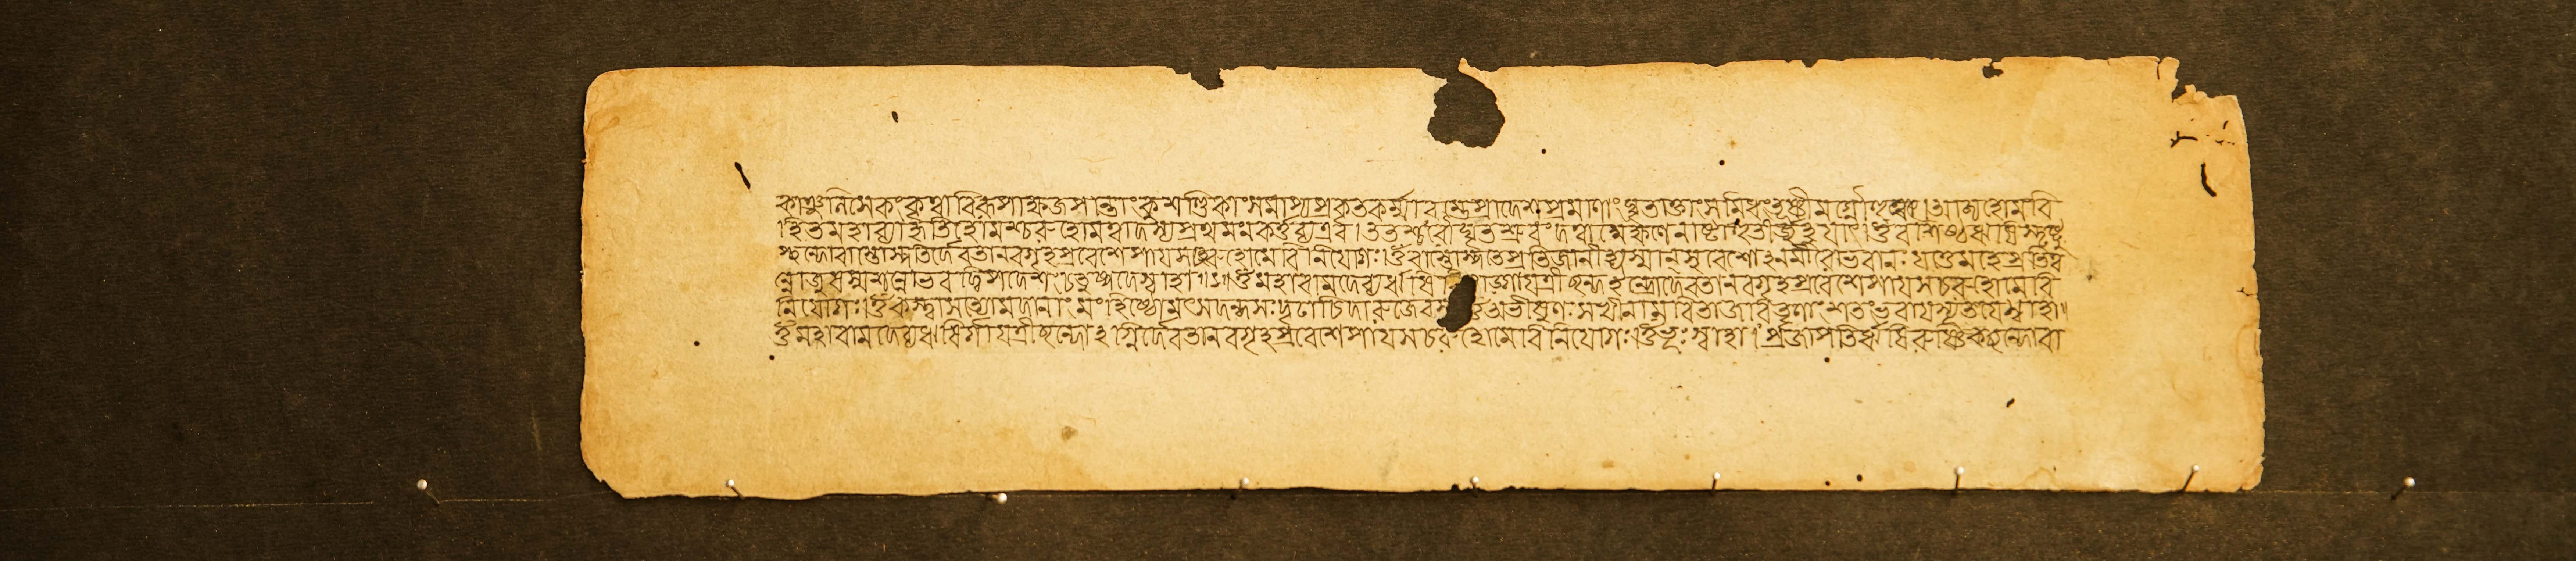 কাঞ্জুনিসেকং কৃত্বা বিরূপাক্ষজপান্তাং কুশণ্ডিকাং সমাপ্য প্রকৃতকর্ম্মারম্ভে প্রাদেশপ্রমাণাং ঘৃতাক্তাং সমিধং তূষ্ণীমগ্নৌ হুত্বা । আজ্যহোমবি
হিতমহাব্যাহৃতিহোমশ্চরুহোমত্বাদস্য প্রথমং ন কর্ত্তব্য এব । ততশ্চরৌ ঘৃতশ্রুবং দত্বা মেক্ষণেন
চ্ছন্দো বাস্তোস্পতির্দেবতা নবগৃহপ্রবেশে পায়সচরুহোমে বিনিয়োগঃ । ওঁ বাস্তোস্পতে প্রতিজানীহ্যস্মান্ সুবেশো ঽনমীবো ভবানঃ । যত্তেমহে প্রতি
ন্নো জুষস্ব শন্নো ভব দ্বিপদে শং চতুষ্পদে স্বাহা ॥ ১ ॥ ওঁ মহাবামদেব্য ঋষি গায়ত্রীচ্ছন্দ ইন্দ্রো দেবতা নবগৃহপ্রবেশে পায়সচরুহোমে বি
নিয়োগঃ । ওঁ কস্ত্বা সত্যো মদানাং মংহিষ্ঠো মৎসদন্ধসঃ দৃঢাচিদারুজে বসু অভীষুণঃ সখীনামবিতা জরিতৄণাং শতং ভবাস্যূতয়ে স্বাহা ॥
ওঁ মহাবামদেব্যঋষির্গায়ত্রীচ্ছন্দো ঽগ্নির্দেবতা নবগৃহপ্রবেশে পায়সচরুহোমে বিনিয়োগঃ । ওঁ ভূঃ স্বাহা । প্রজাপতির্ঋষিরুষ্ণিক্ছন্দো বা